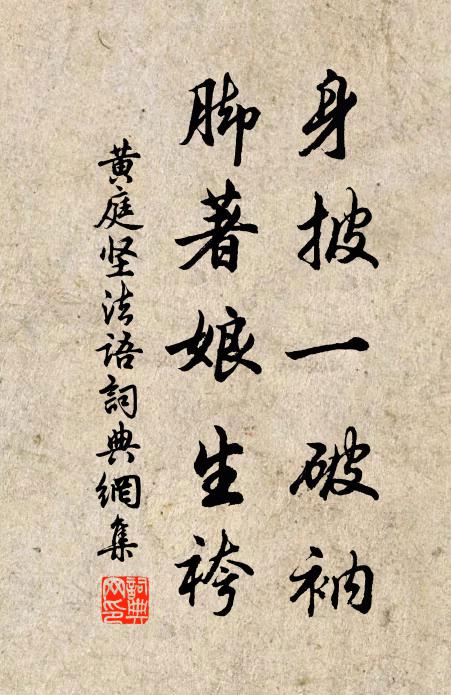 身披一破衲
脚著娘生袴
黄庭坚法语詞典網集
詞典網印